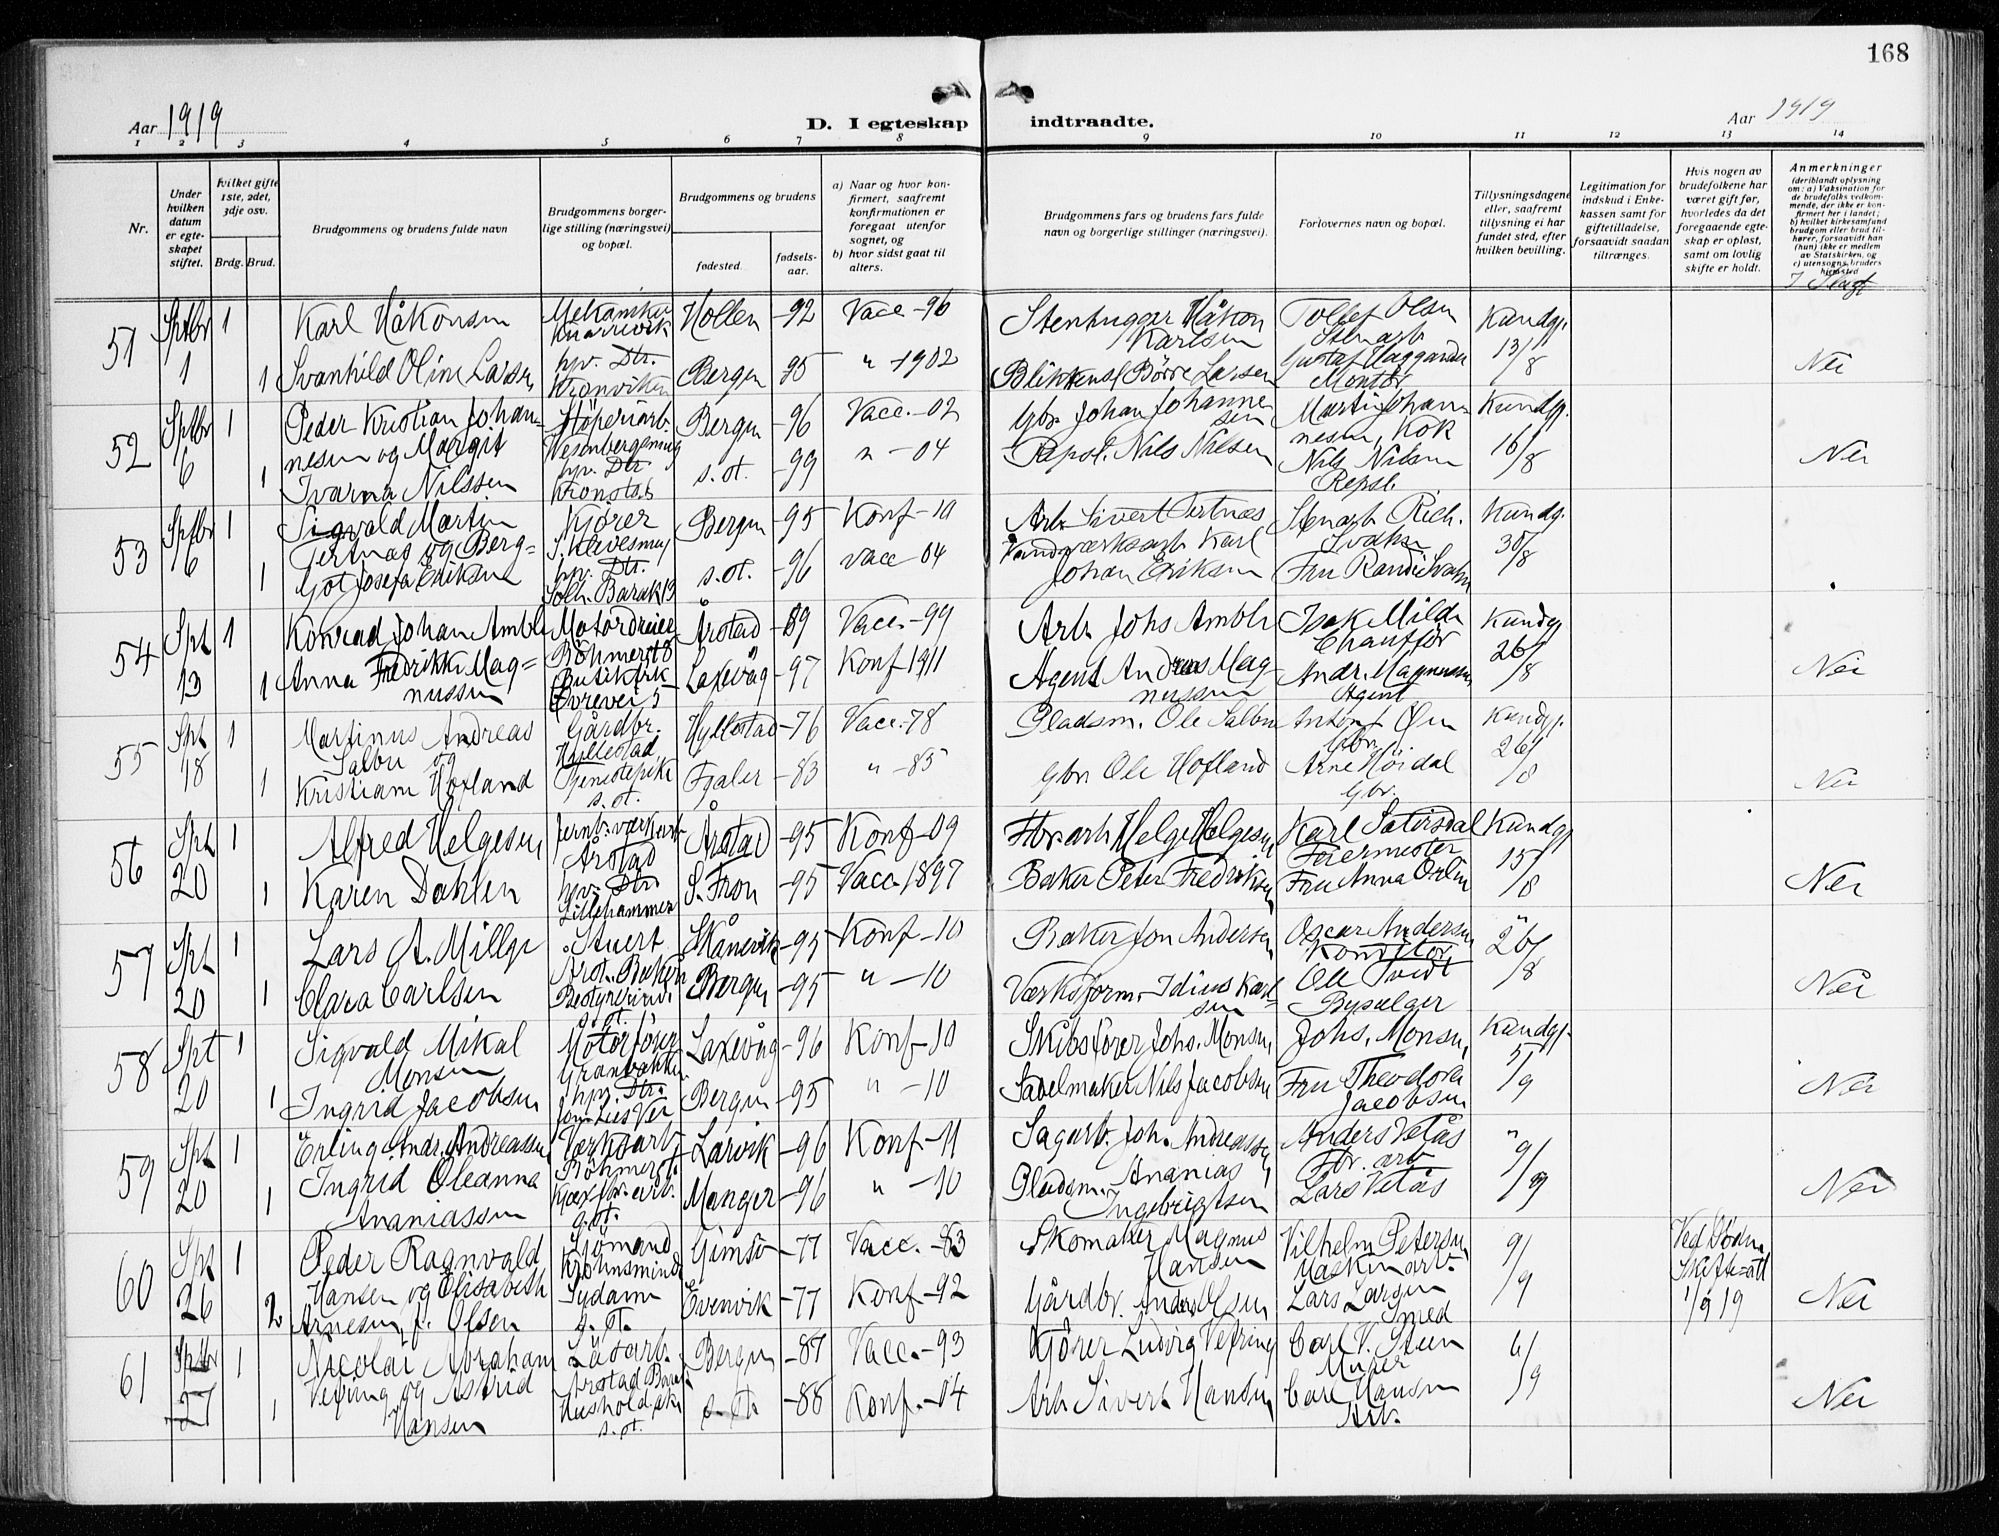 168
Aar 1919
D. I egteskap indtraadte.
Aar 1919
1 2 3 4 5 6 7 8 9 10 11 12 13 14
Nr.
Under hvilken datum er egteskapet stiftet.
hvilket gifte 1ste, 2det, 3dje osv.
Brdg. Brud.
Brudgommens og brudens fulde navn
Brudgommens borgerlige stilling (næringsvei) og bopæl.
Brudgommens og brudens
fødested.
fødselsaar.
a) Naar og hvor konfirmert, saafremt konfirmationen er foregaat utenfor sognet, og
b) hvor sidst gaat til alters.
Brudgommens fars og brudens fars fulde navn og borgerlige stillinger (næringsvei).
Forlovernes navn og bopæl.
Tillysningsdagene eller, saafremt tillysning ei har fundet sted, efter hvilken bevilling.
Legitimation for indskud i Enkekassen samt for giftetilladelse, forsaavidt saadan tiltrænges.
Hvis nogen av brudefolkene har været gift før, hvorledes da det foregaaende egteskap er opløst, samt om lovlig skifte er holdt.
Anmerkninger
(deriblandt oplysning om: a) Vaksination for de brudefolks vedkommende, der ikke er konfirmert her i landet; b) hvilket kirkesamfund brudgom eller brud tilhører, forsaavidt han (hun) ikke er medlem av Statskirken, og c) utensogns bruders hjemsted
I Slegt
51 Sptbr 1 Karl Håkonsen Mekaniker Knarrevik Hollen -92 Vacc -96 Stenhugger Håkon Karlsen Tollef Olsen Stenarb Kundgj.
1 1 Svanhild Oline Larsen hpv. Dtr. Kronviken Bergen 95 " -1902 Blikkensl Börre Larsen Gustaf Haggander Montör 13/8 Nei
52 Sptbr 1 Peder Kristian Johannesen og Margit Stöperiarb. Bergen -96 Vacc.-02 Gbr. Johan Johannesen Martin Johannesen, Kok Kundgj.
6 1 Ivarna Nilssen hpv. Dtr Kronstab s. st. -99 " -04 Repsl. Nils Nilsen Nils Nilsen Repsl. 16/8 Nei
53 Sptbr 1 Sigvald Martin Tertnæs og Berg= Kjörer Bergen -95 Konf-10 Arb. Sivert Tertnæs Stenarb Rich. Kundgj.
6 1 Got Josefa Eriksen hpv. Dtr. Solh. Barak 13 s. st. -96 vacc -04 Vandværksarb Karl Johan Eriksen Fru Randi 30/8
54 Spt 1 Konrad Johan Amble Motordreier Böhmerst 8 Årstad -89 Vacc.-99 Arb Johs Amble Isak Milde Chaufför Kundgj
13 1 Anna Fredrikke Magnussen Butikkfrk 5 Laxevåg -97 Konf 1911 Agent Andreas Magnussen Andr. Magnussen Agent 26/8 Nei
55 Spt 1 Martinus Andreas Salbu og Gårdbr. Hyllestad Hyllestad -76 Vacc.-78 Pladsm. Ole Salbu Anton Öen Gbr. Kundgj.
18 1 Kristiane Hofland Tjenestepike s. st. Fjaler -83 " -85 Gbr Ole Hofland Arne Höidal Gbr. 26/8 Nei
56 Spt 1 Alfred Helgesen Jernb.værkarb Årstad Årstad -95 Konf -09 Fbr. arb Helge Helgesen Karl Sætersdal Feiermester Kundgj
20 1 Karen Dahlen hpv. Dtr Lillehammer S. Fron -95 Vacc. 1897 Baker Peter Fredriksen Fru Anna 15/8 Nei
57 Spt 1 Lars A. Millje Stuert Skånevik -95 Konf -10 Baker Jon Andersen Oscar Andersen Konditor "
20 1 Clara Carlsen Bestyrerinde s. st. Bergen -95 " -10 Værksform. Idius Karlsen Ole Tvedt Bysælger 26/8 Nei
58 Spt 1 Sigvald Mikal Monsen Motorförer Laxevåg -96 Konf -10 Skibsförer Johs. Monsen Johs. Monsen Kundgj.
20 1 Ingrid Jacobsen hpv. Dtr. Bergen -95 " -10 Sadelmaker Nils Jacobsen Fru Theodora Jacobsen 5/9 Nei
59 Spt 1 Erling Andr. Andreassen Værksarb Böhmerst. Larvik -96 Konf -11 Sagarb. Joh. Andreassen Anders Vetås Fbr. arb "
20 1 Ingrid Oleanna Ananiassen s. st. Manger -96 " -10 Pladsm. Ananias Ingebrigtsen Lars Vetås 9/9 Nei
60 Spt 1 Peder Ragnvald Hansen og Elisabeth Sjömand Krohnsminde Gimsö -77 Vacc. -83 Skomaker Magnus Hansen Vilhelm Petersen Maskinarb. 9/9 Ved Död Skifte=att 1/9 19
26 2 Arnesen f. Olsen Sydame s. st. Evenvik -77 Konf -92 Gårdbr. Anders Olsen Lars Larsen Smed Nei
61 Sptbr 1 Nicolai Abraham Vefring og Astrid Bergen -87 Vacc.-93 Kjörer Ludvig Vefring Carl V. Steen Murer 6/9
27 1 Hansen s. st. s. st. -88 Konf. -04 Arb Sivert Hansen Carl Hansen Arb. Nei